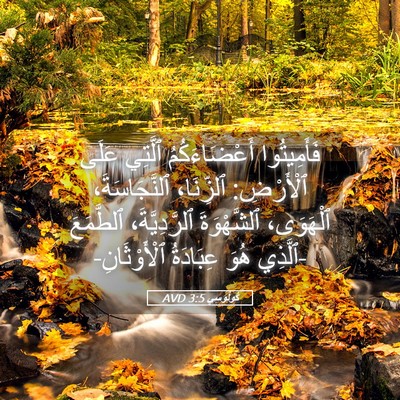 فَأَمِيتُوا أَعْضَاءَكُمُ ٱلَّتِي عَلَى
ٱلْأَرْضِ: ٱلزِّنَا، ٱلنَّجَاسَةَ،
ٱلْهَوَى، ٱلشَّهْوَةَ ٱلرَّدِيَّةَ، ٱلطَّمَعَ
-ٱلَّذِي هُوَ عِبَادَةُ ٱلْأَوْثَانِ-
كولوسي 3:5 AVD